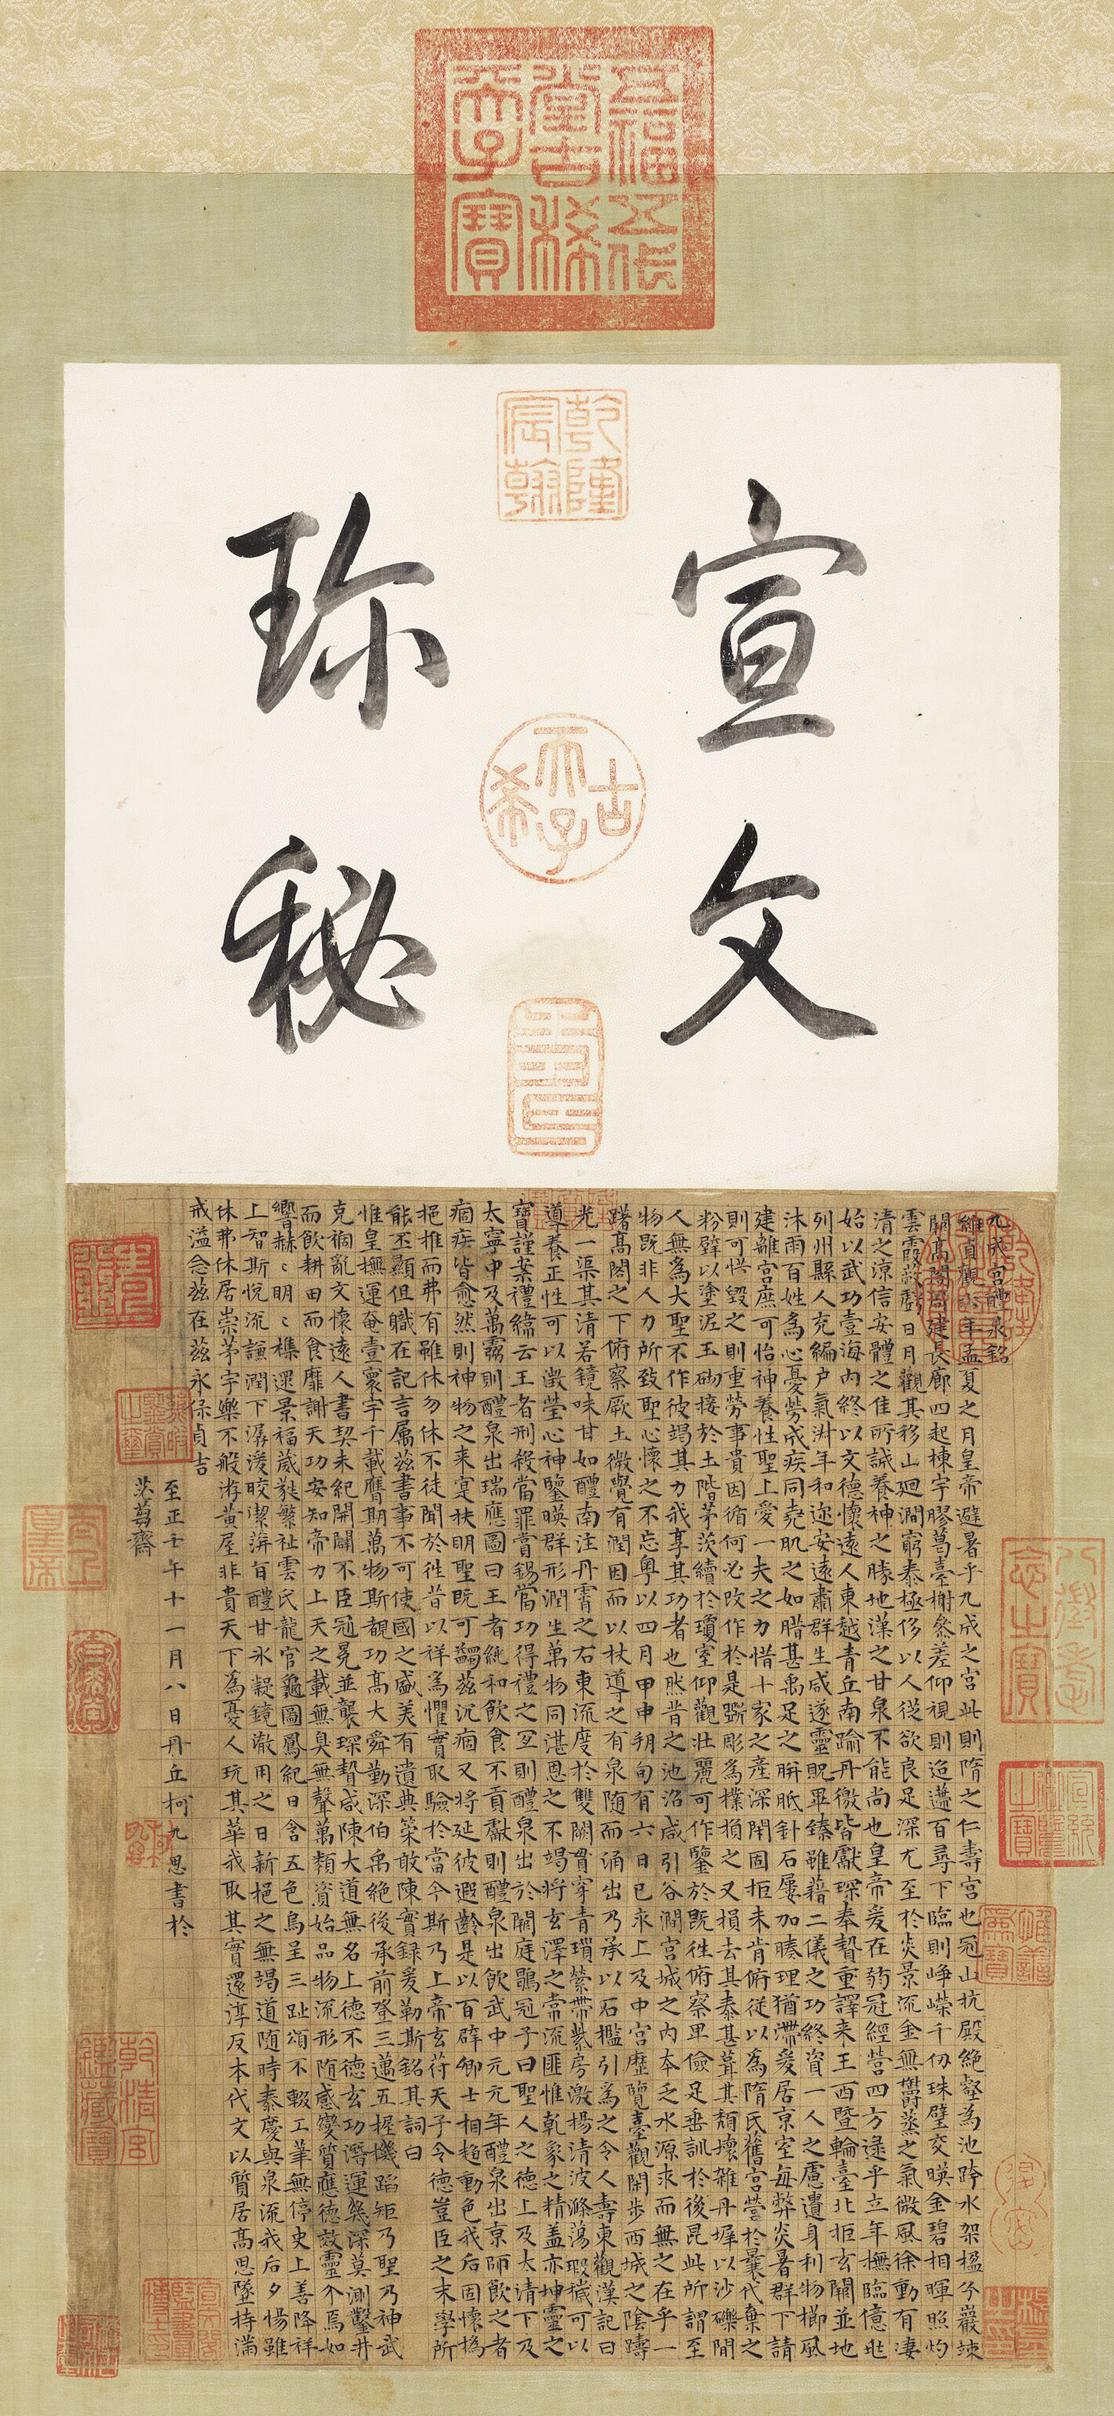 五福五代堂古稀天子寶
乾隆宸翰
宣文
古希天子
珎秘
九成宮醴泉銘
維貞觀六年孟夏之月皇帝避暑乎九成之宮此則隋之仁壽宮也冠山抗殿絕壑為池跨水架楹分巖竦
闕高閣周建長廊四起棟宇膠葛臺榭參差仰視則迢遞百尋下臨則崢嶸千仞珠璧交暎金碧相暉照灼
雲霞蔽虧日月觀其移山迴澗窮泰極侈以人從欲良足深尤至於炎景流金無鬱蒸之氣微風徐動有淒
清之涼信安體之佳所誠養神之勝地漢之甘泉不能尚也皇帝爰在弱冠經營四方逮乎立年撫臨億兆
始以武功壹海內終以文德懷遠人東越青丘南踰丹徼皆獻琛奉贄重譯来王西暨輪臺北拒玄闕並地
列州縣人充編戶氣淑年和迩安遠肅群生咸遂靈貺畢臻雖藉二儀之功終資一人之慮遺身利物櫛風
沐雨百姓為心憂勞成疾同堯肌之如腊甚禹足之胼胝針石屢加腠理猶滯爰居京室每弊炎暑群下請
建離宮庶可怡神養性聖上愛一夫之力惜十家之產深閉固拒未肯俯從以為隋氏舊宮營於曩代棄之
則可惜毀之則重勞事貴因循何必改作於是斲彫為樸損之又損去其泰甚葺其頹壞雜丹墀以沙礫間
粉壁以塗泥玉砌接於土階茅茨續於瓊室仰觀壯麗可作鑒於既徃俯察卑儉足垂訓於後昆此所謂至
人無為大聖不作彼竭其力我享其功者也然昔之池沼咸引谷澗宮城之內本乏水源求而無之在乎一
物既非人力所致聖心懷之不忘粵以四月甲申朔旬有六日己亥上及中宮歷覽臺觀閑步西城之陰躊
躇高閣之下俯察厥土微覺有潤因而以杖導之有泉随而涌出乃承以石檻引為之令人壽東觀漢記曰
光一渠其清若鏡味甘如醴南注丹霄之右東流度於雙闕貫穿青瑣縈帶紫房激揚清波滌蕩瑕穢可以
導養正性可以澂瑩心神鑒暎群形潤生萬物同湛恩之不竭將玄澤之常流匪惟乾象之精蓋亦坤靈之
寶謹案禮緯云王者刑殺當罪賞錫當功得禮之宜則醴泉出於闕庭鶡冠子曰聖人之德上及太清下及
太寧中及萬靈則醴泉出瑞應圖曰王者純和飲食不貢獻則醴泉出飲武中元元年醴泉出京師飲之者
痼疾皆愈然則神物之来寔扶明聖既可蠲茲沉痼又將延彼遐齡是以百辟卿士相趨動色我后固懷撝
挹推而弗有雖休勿休不徒聞於徃昔以祥為懼實取驗於當今斯乃上帝玄符天子令德豈臣之末學所
能丕顯但職在記言屬茲書事不可使國之盛美有遺典策敢陳實錄爰勒斯銘其詞曰
惟皇撫運奄壹寰宇千載膺期萬物斯覩功高大舜勤深伯禹絕後承前登三邁五握機蹈矩乃聖乃神武
克禍亂文懷遠人書契未紀開闢不臣冠冕並襲琛贄咸陳大道無名上德不德玄功潛運幾深莫測鑿井
而飲耕田而食靡謝天功安知帝力上天之載無臭無聲萬類資始品物流形随感變質應德效靈介焉如
響赫〻明〻雜遝景福葳蕤繁祉雲氏龍官龜圖鳳紀日含五色烏呈三趾頌不輟工筆無停史上善降祥
上智斯悅流謙潤下潺湲皎潔蓱旨醴甘冰凝鏡澈用之日新挹之無竭道随時泰慶與泉流我后夕惕雖
休弗休居崇茅宇樂不般游黃屋非貴天下為憂人玩其華我取其實還淳反本代文以質居高思墜持滿
戒溢念茲在茲永保貞吉
至正壬午十一月八日丹丘柯九思書於
芸香齋
太上皇帝
八徵耄念之寶
宣統御覽之寶
乾清宮鑒藏寶